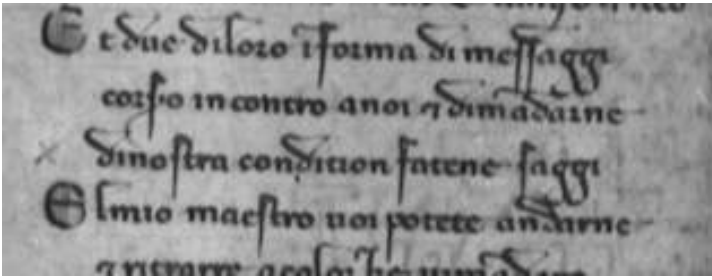 Et due diloro iforma di messaggi
corsoro incontro anoi ⁊ dimadarne
dinostra condition fatene saggi
El mio maestro uoi potete andarne
⁊ ritrarre acoloi che